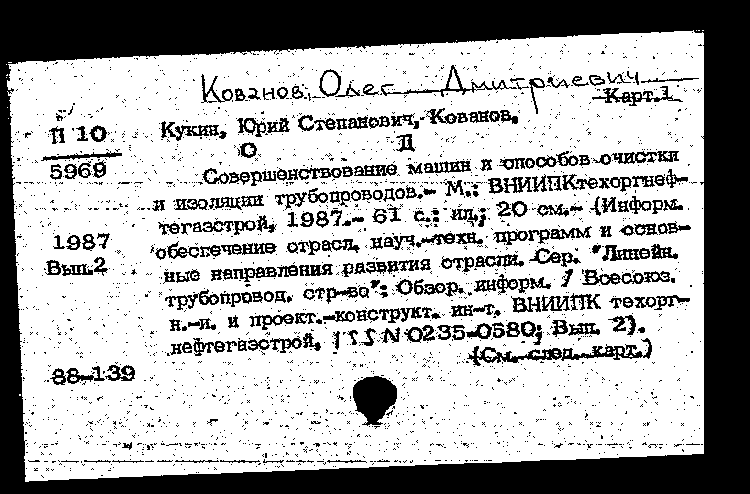 Кованов, Олег Дмитриевич
Карт.1
П 10
5969
1987
Вып.2
88-139
Кукин, Юрий Степанович, Кованов,
О Д
Совершенствование машин и способов очистки
и изоляции трубопроводов.- М.: ВНИИПКтехоргнеф-
тегазстрой, 1987.- 61 с.: ил.; 20 см.- (Информ.
обеспечение отрасл. науч.-техн. программ и основ-
ные направления развития отрасли. Сер. "Линейн.
трубопровод. стр-во": Обзор. информ. / Всесоюз.
н.-и. и проект.-конструкт. ин-т. ВНИИПК техорг-
нефтегазстрой, ISSN 0235-0580; Вып. 2).
(См. след. карт.)